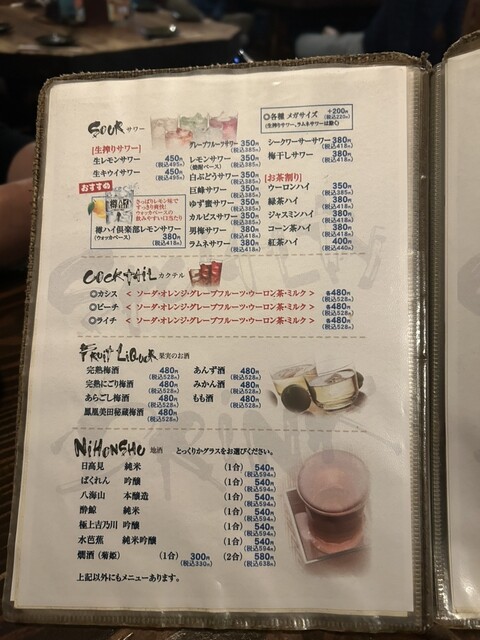 SOUR サワー
◎各種 メガサイズ +200円(税込220円)
(生搾りサワー、ラムネサワーは除く)
[生搾りサワー]
生レモンサワー 450円(税込495円)
生キウイサワー 450円(税込495円)
おすすめ
樽ハイ倶楽部レモンサワー
(ウォッカベース) 380円(税込418円)
グレープフルーツサワー 350円(税込385円)
レモンサワー 350円(税込385円)
(焼酎ベース)
白ぶどうサワー 350円(税込385円)
巨峰サワー 350円(税込385円)
ゆず蜜サワー 350円(税込385円)
カルピスサワー 350円(税込385円)
男梅サワー 380円(税込418円)
ラムネサワー 380円(税込418円)
シークワーサーサワー 380円(税込418円)
梅干しサワー 380円(税込418円)
[お茶割り]
ウーロンハイ 350円(税込385円)
緑茶ハイ 350円(税込385円)
ジャスミンハイ 380円(税込418円)
コーン茶ハイ 380円(税込418円)
紅茶ハイ 400円(税込440円)
COCKTAIL カクテル
◎カシス < ソーダ・オレンジ・グレープフルーツ・ウーロン茶・ミルク > 各480円(税込528円)
◎ピーチ < ソーダ・オレンジ・グレープフルーツ・ウーロン茶・ミルク > 各480円(税込528円)
◎ライチ < ソーダ・オレンジ・グレープフルーツ・ウーロン茶・ミルク > 各480円(税込528円)
FRUIT LIQUOR 果実のお酒
完熟梅酒 480円(税込528円)
完熟にごり梅酒 480円(税込528円)
あらごし梅酒 480円(税込528円)
鳳凰美田秘蔵梅酒 480円(税込528円)
あんず酒 480円(税込528円)
みかん酒 480円(税込528円)
もも酒 480円(税込528円)
NIHONSHU 地酒 とっくりかグラスをお選びください。
日高見 純米 (1合) 540円(税込594円)
ばくれん 吟醸 (1合) 540円(税込594円)
八海山 本醸造 (1合) 540円(税込594円)
酔鯨 純米 (1合) 540円(税込594円)
極上吉乃川 吟醸 (1合) 540円(税込594円)
水芭蕉 純米吟醸 (1合) 540円(税込594円)
燗酒(菊姫) (1合) 300円(税込330円) (2合) 580円(税込638円)
上記以外にもメニューあります。